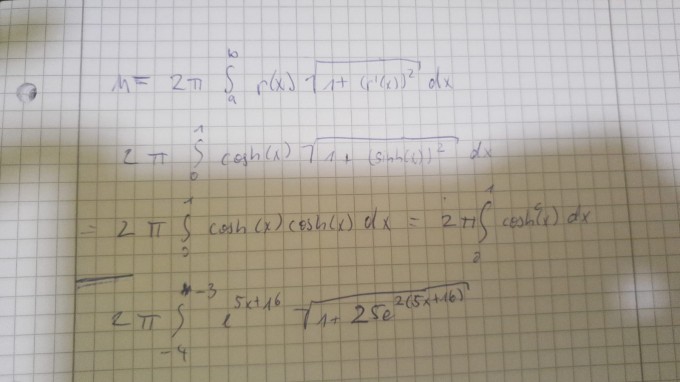 M = 2π ∫_a^b r(x) √(1 + (r'(x))²) dx
2π ∫_0^1 cosh(x) √(1 + (sinh(x))²) dx
= 2π ∫_0^1 cosh(x) cosh(x) dx = 2π ∫_0^1 cosh²(x) dx
2π ∫_-4^-3 e^(5x+16) √(1 + 25e^(2(5x+16)))